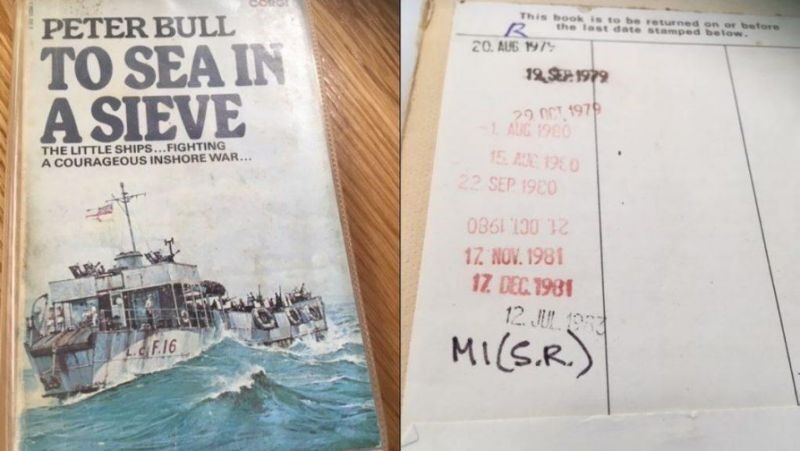 CORGI
PETER BULL
TO SEA IN
A SIEVE
THE LITTLE SHIPS...FIGHTING
A COURAGEOUS INSHORE WAR...
L.C.F.16
This book is to be returned on or before
the last date stamped below.
R
20. AUG 1979
19. SEP. 1979
29 OCT. 1979
-1. AUG 1980
15. AUG. 1980
22 SEP. 1980
21. OCT. 1980
17. NOV. 1981
17. DEC. 1981
12. JUL. 1983
M1(S.R.)